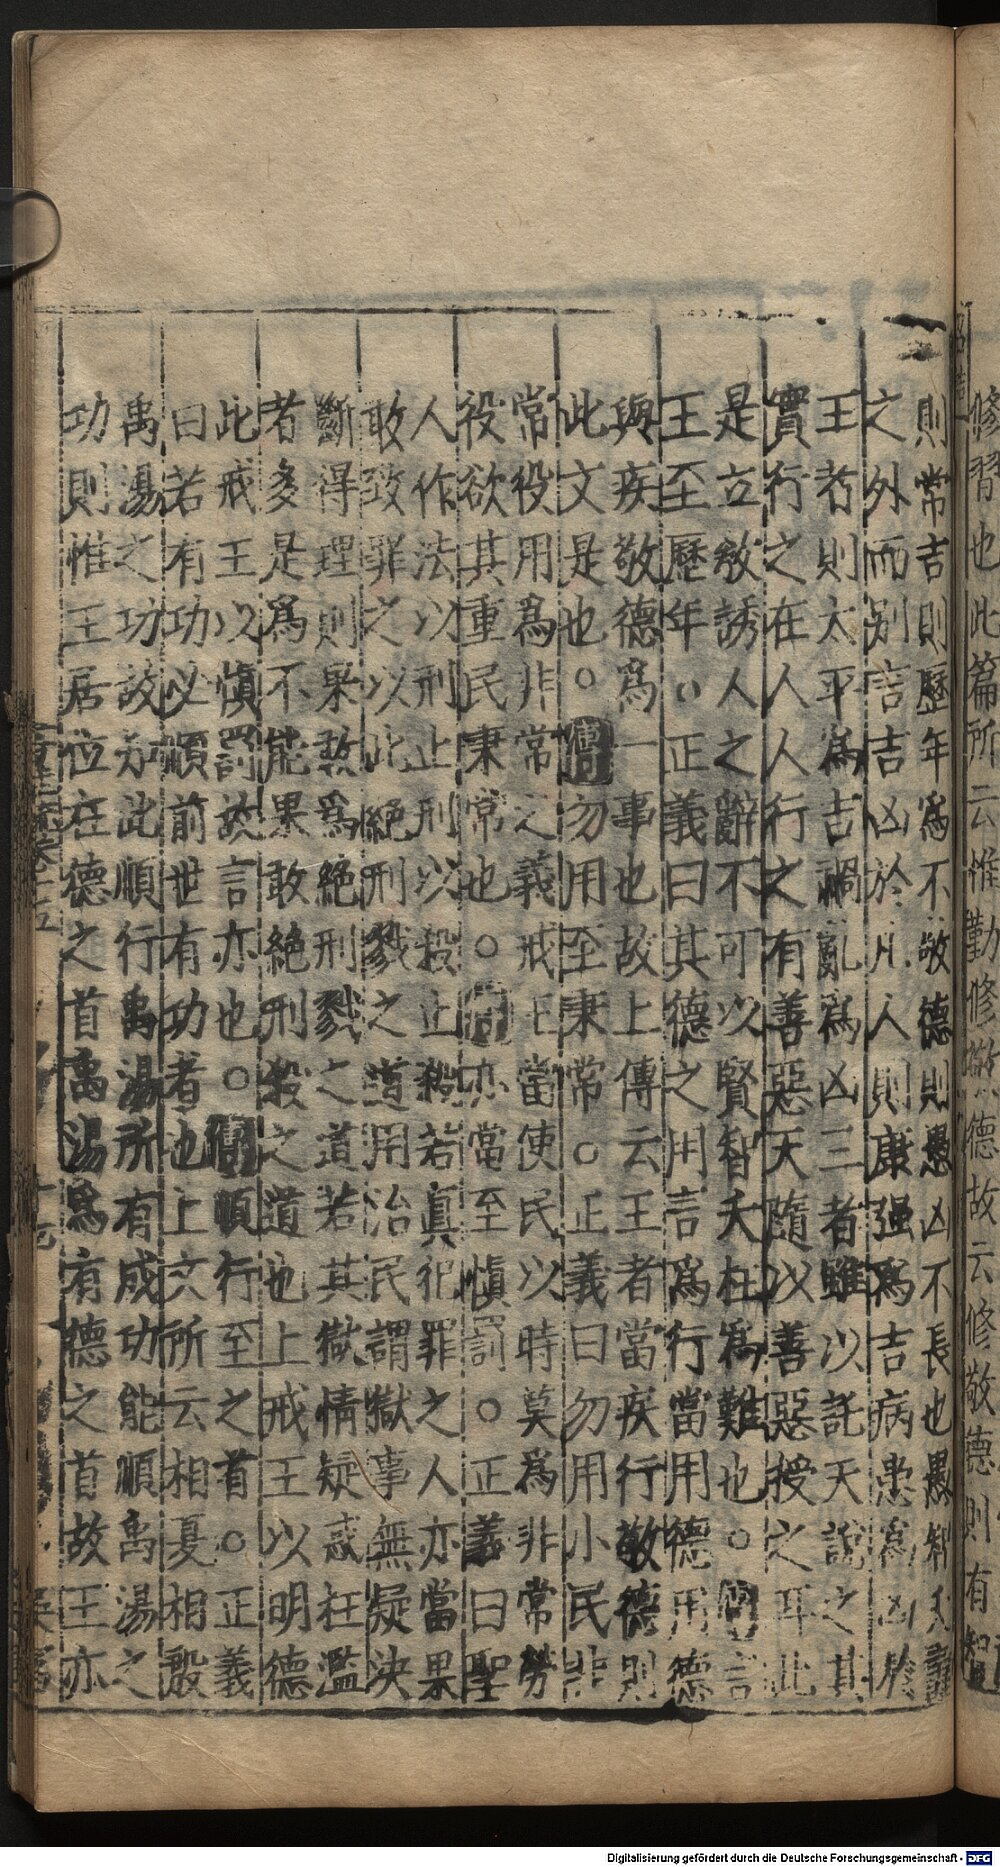 修習也此篇所云惟勤修敬德故云修敬德則有智
則常吉則歷年爲不敬德則愚凶不長也愚智夭壽
之外而别言吉凶於凡人則康强爲吉病患爲凶於
王者則太平爲吉禍亂爲凶三者雖以託天說之其
實行之在人人行之有善惡天隨以善惡授之耳此
是立敎誘人之辭不可以賢智夭枉爲難也○傳言
王至歷年○正義曰其德之用言爲行當用德用德
與疾敬德爲一事也故上傳云王者當疾行敬德則
此文是也○傳勿用至秉常○正義曰勿用小民非
常役用爲非常之義戒王當使民以時莫爲非常勞
役欲其重民秉常也○傳亦當至慎罰○正義曰聖
人作法以刑止刑以殺止殺若真犯罪之人亦當果
敢致罪之以此絕刑戮之道用治民謂獄事無疑決
斷得理則果敢爲絕刑戮之道若其獄情疑惑枉濫
者多是爲不能果敢絕刑殺之道也上戒王以明德
此戒王以愼罰故言亦也○傳順行至之首○正義
曰若有功必順前世有功者也上文所云相夏相殷
禹湯之功故知此順行禹湯所有成功能順禹湯之
功則惟王居位在德之首禹湯爲有德之首故王亦
Digitalisierung gefördert durch die Deutsche Forschungsgemeinschaft - DFG